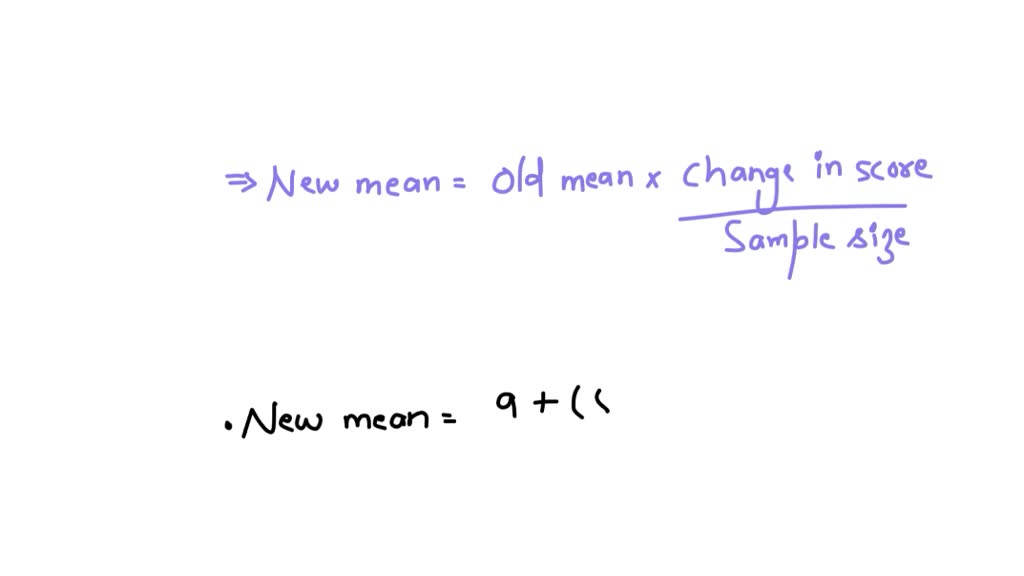 ⇒ New mean = old mean x change in score
Sample size
. New mean = 9 + ( (